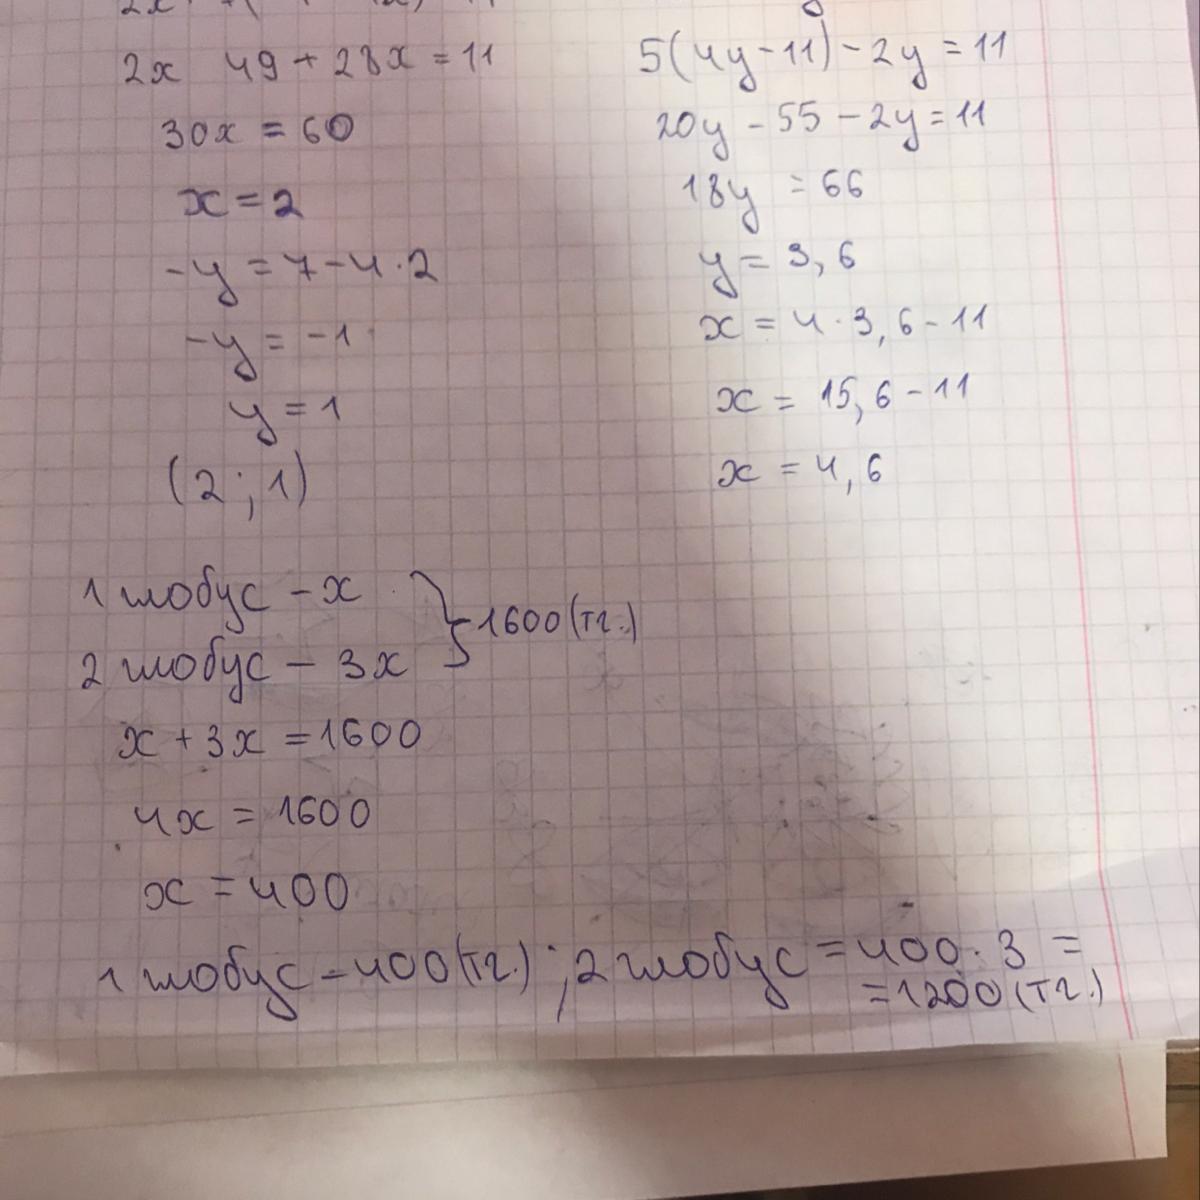 2x 49 + 28x = 11
30x = 60
x = 2
-y = 7 - 4 · 2
-y = -1
y = 1
(2 ; 1)
5(4y - 11) - 2y = 11
20y - 55 - 2y = 11
18y = 66
y = 3,6
x = 4 · 3,6 - 11
x = 15,6 - 11
x = 4,6
1 глобус - x
2 глобус - 3x
} 1600 (тг.)
x + 3x = 1600
4x = 1600
x = 400
1 глобус - 400 (тг.) ; 2 глобус = 400 · 3 =
= 1200 (тг.)